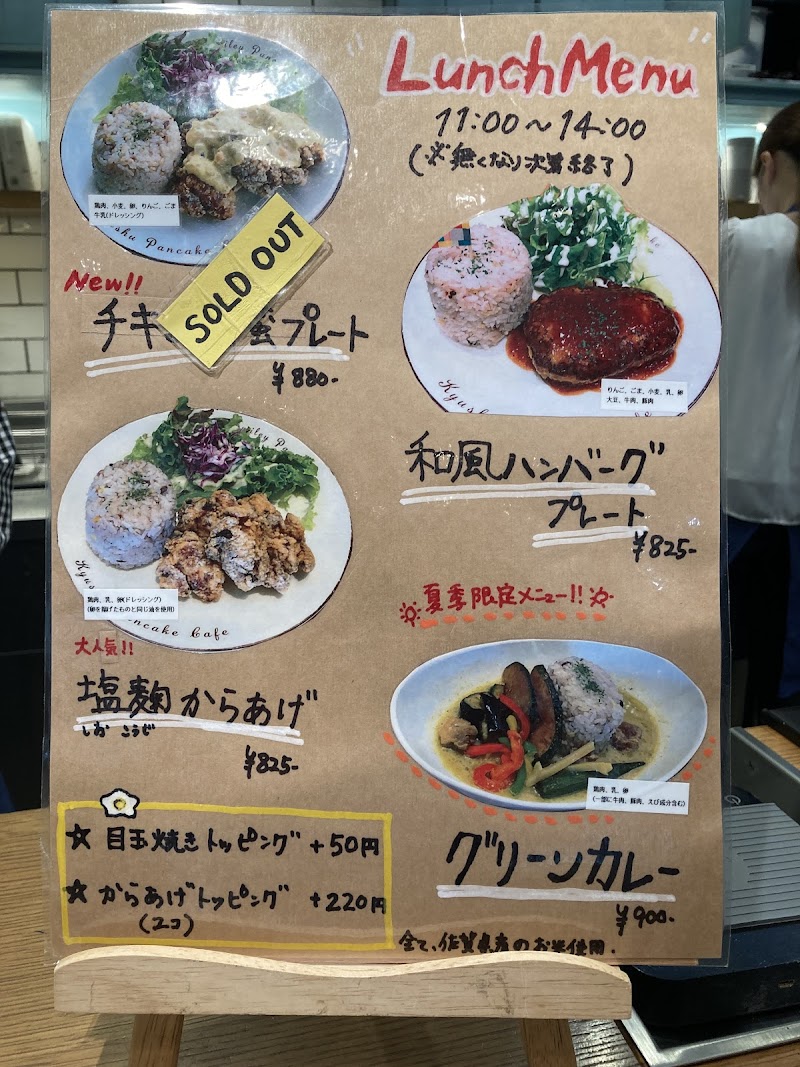 "LunchMenu"
11:00～14:00
(※無くなり次第終了)
鶏肉、小麦、卵、りんご、ごま
牛乳(ドレッシング)
Pancake
New!!
SOLD OUT
チキ
プレート
¥880-
りんご、ごま、小麦、乳、卵
大豆、牛肉、豚肉
和風ハンバーグ
プレート
¥825-
鶏肉、乳、卵(ドレッシング)
(卵を揚げたものと同じ油を使用)
Pancake Cafe
大人気!!
塩麹からあげ
しお こうじ
¥825-
夏季限定メニュー!!
鶏肉、乳、卵
(一部に牛肉、豚肉、えび成分含む)
グリーンカレー
¥900-
☆ 目玉焼きトッピング +50円
☆ からあげトッピング +220円
(2コ)
全て、佐賀県産のお米使用.